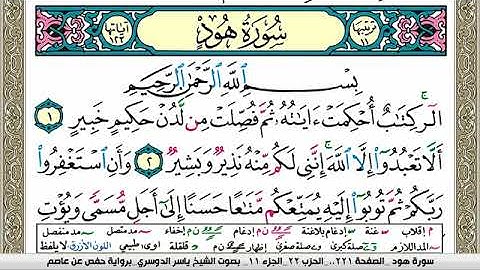 ترتيبها ١١ سُورَةُ هُودٍ آياتها ١٢٣
بِسْمِ اللَّهِ الرَّحْمَٰنِ الرَّحِيمِ
الٓر كِتَٰبٌ أُحْكِمَتْ ءَايَٰتُهُۥ ثُمَّ فُصِّلَتْ مِن لَّدُنْ حَكِيمٍ خَبِيرٍ ١
أَلَّا تَعْبُدُوٓا۟ إِلَّا اللَّهَ إِنَّنِى لَكُم مِّنْهُ نَذِيرٌ وَبَشِيرٌ ٢ وَأَنِ اسْتَغْفِرُوا۟
رَبَّكُمْ ثُمَّ تُوبُوٓا۟ إِلَيْهِ يُمَتِّعْكُم مَّتَٰعًا حَسَنًا إِلَىٰٓ أَجَلٍ مُّسَمًّى وَيُؤْتِ
م إقلاب غنة إدغام بلاغنة إدغام إخفاء مد متصل مد منفصل
المد اللازم صلة كبرى صلة صغرى إظهار قلقلة مد عوى، طبيعي اللون الأزرق لا يلفظ
سورة هود _الصفحة ٢٢١.. _الحزب ٢٢ _الجزء ١١ _بصوت الشيخ ياسر الدوسري _برواية حفص عن عاصم